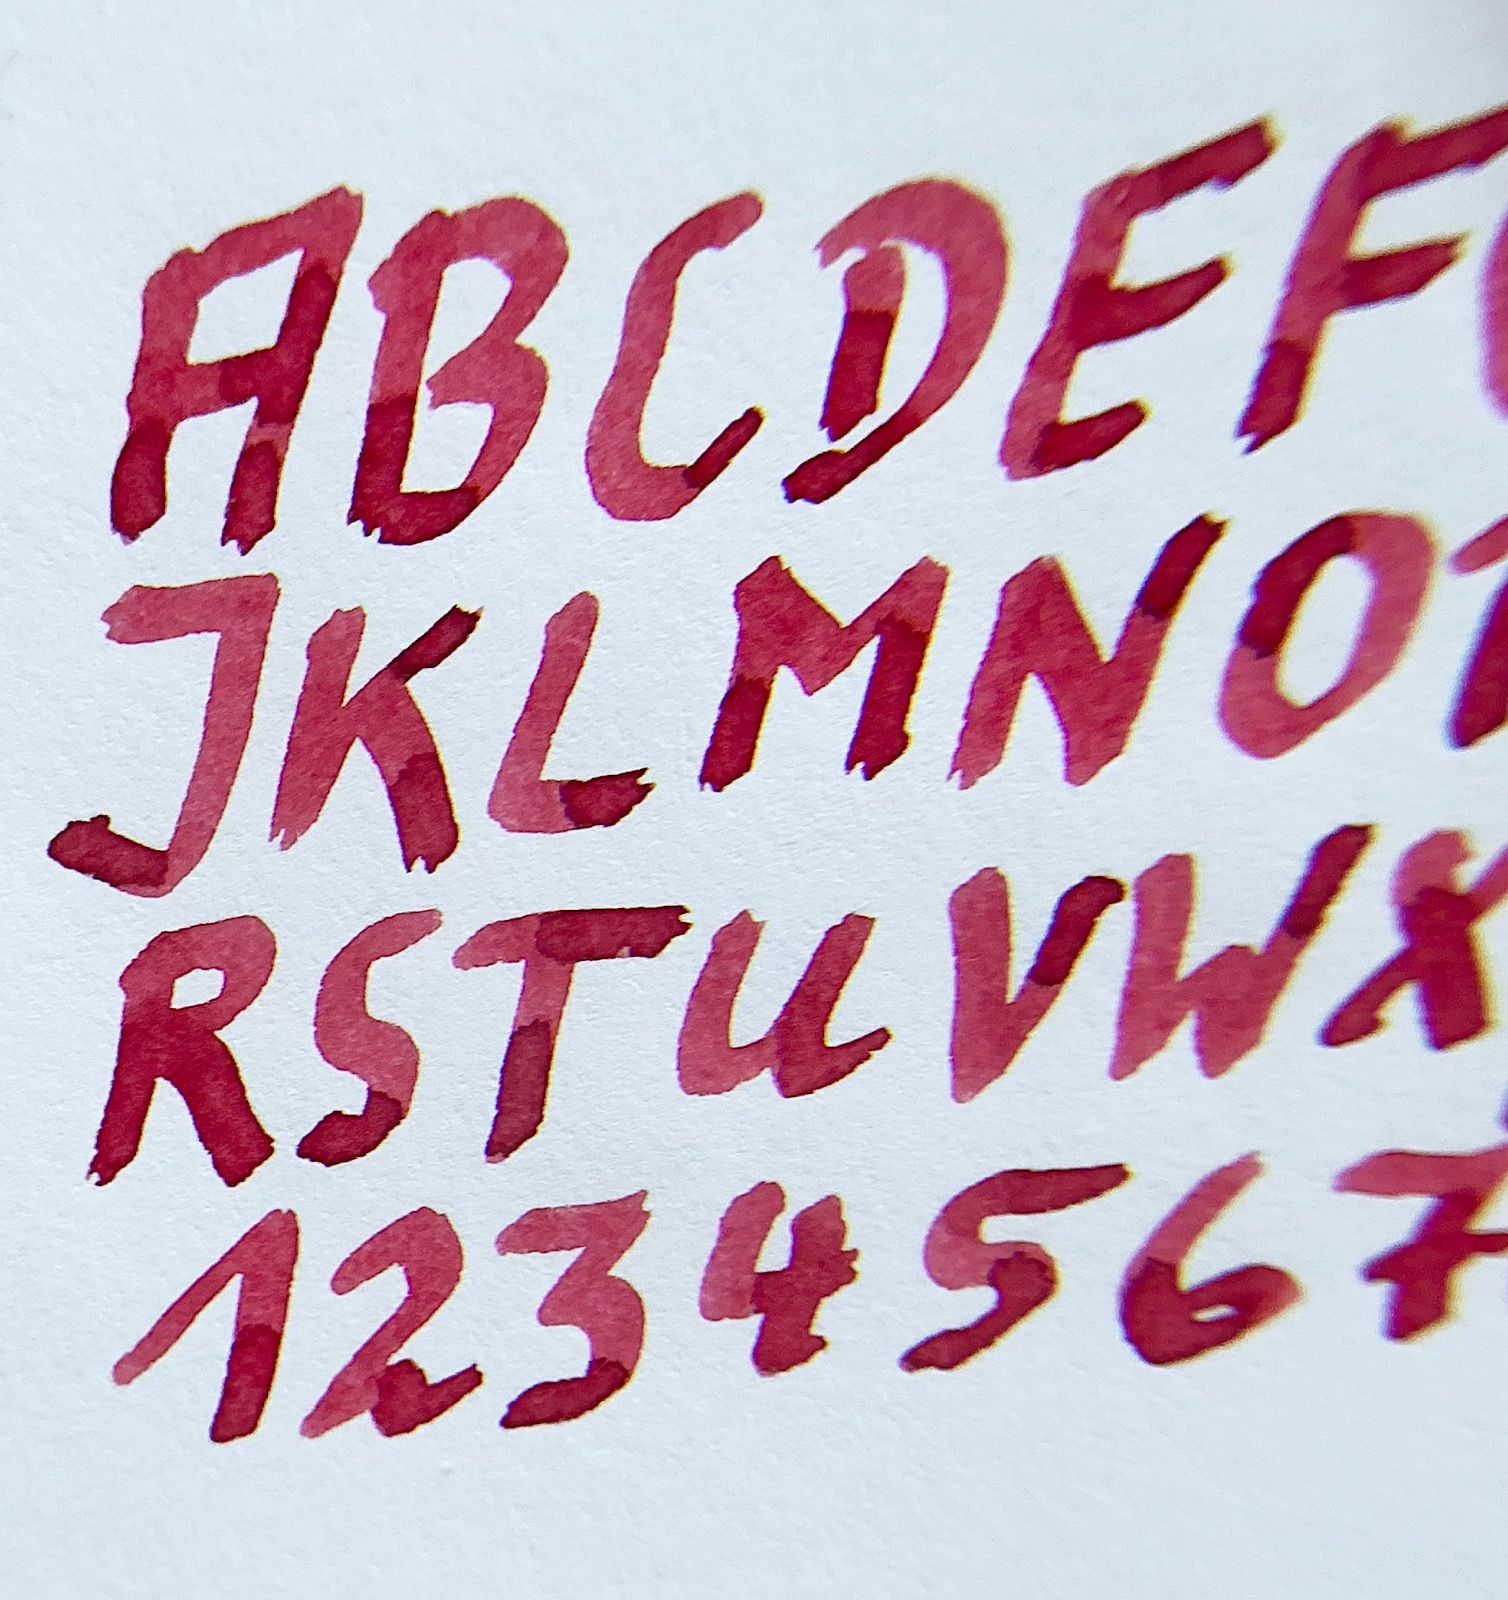 ABCDEF
JKLMNO
RSTUVWX
1234567